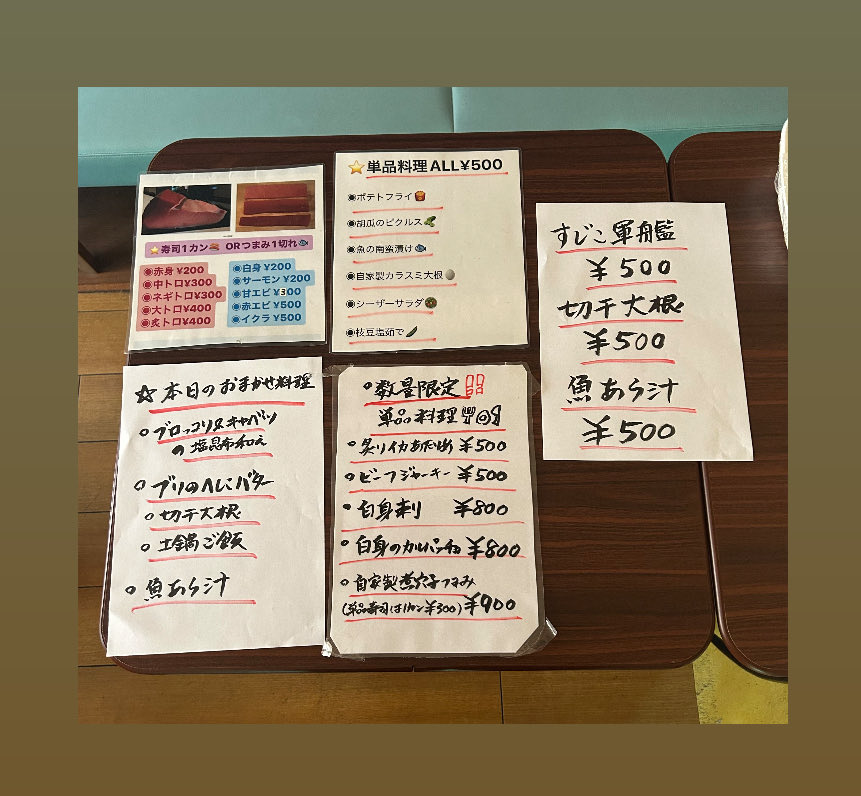 ⭐寿司1カン🍣 ORつまみ1切れ🐟
◉赤身 ¥200
◉中トロ¥300
◉ネギトロ¥300
◉大トロ¥400
◉炙トロ¥400
◉白身 ¥200
◉サーモン ¥200
◉甘エビ ¥300
◉赤エビ ¥500
◉イクラ ¥500
⭐単品料理ALL¥500
◉ポテトフライ🍟
◉胡瓜のピクルス🥒
◉魚の南蛮漬け🐟
◉自家製カラスミ大根
◉シーザーサラダ🥗
◉枝豆塩茹で
すじこ軍艦
¥500
切干大根
¥500
魚あら汁
¥500
☆本日のおまかせ料理
○ブロッコリ&キャベツ
の塩昆布和え
○ブリのへしこバター
○切干大根
○土鍋ご飯
○魚あら汁
○数量限定
単品料理
○炙りイカあたりめ ¥500
○ビーフジャーキー ¥500
○白身刺 ¥800
○白身のカルパッチョ ¥800
○自家製煮穴子つまみ
(単品寿司は1カン¥500) ¥900